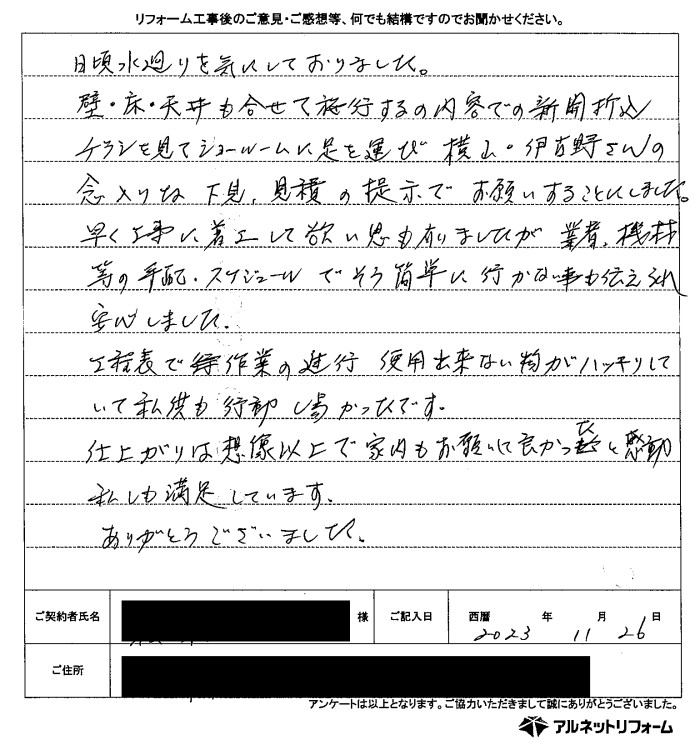 リフォーム工事後のご意見・ご感想等、何でも結構ですのでお聞かせください。
日頃水廻りを気にしておりました。
壁・床・天井も合せて施行するの内容での新聞折込
チラシを見てショールームに足を運び 横山・伊古野さんの
念入りな 下見、見積の提示で お願いすることにしました。
早く工事に着工して欲い思も有りましたが 業者、機材
等の手配・スケジュールでそう簡単に行かない事も伝えられ
安心しました。
工程表で 作業の進行 使用出来ない物がハッキリして
いて私達も行動し易かったです。
仕上がりは想像以上で家内もお願いして良かったと感動
私しも満足しています。
ありがとうございました。
ご契約者氏名 様 ご記入日 西暦 2023 年 11 月 26 日
ご住所
アンケートは以上となります。ご協力いただきまして誠にありがとうございました。
アルネットリフォーム